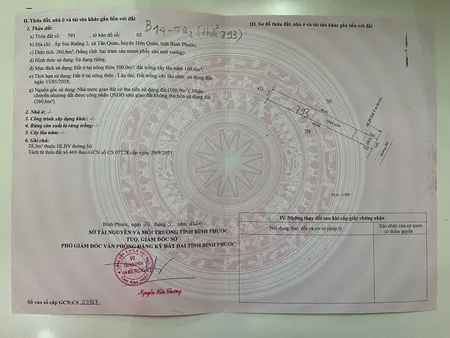 II. Thửa đất, nhà ở và tài sản khác gắn liền với đất
B14-TQ2 (thửa 793)
1. Thửa đất:
a) Thửa đất số: 793 , tờ bản đồ số: 03
b) Địa chỉ: Ấp Sóc Ruộng 2, xã Tân Quan, huyện Hớn Quản, tỉnh Bình Phước.
c) Diện tích: 260,6m², (bằng chữ: hai trăm sáu mươi phẩy sáu mét vuông)
d) Hình thức sử dụng: Sử dụng riêng;
đ) Mục đích sử dụng: Đất ở tại nông thôn 100,0m²; đất trồng cây lâu năm 160,6m².
e) Thời hạn sử dụng: Đất ở tại nông thôn : Lâu dài; Đất trồng cây lâu năm: sử dụng đến
ngày 15/01/2058;
g) Nguồn gốc sử dụng: Nhà nước giao đất có thu tiền sử dụng đất (100,0m²); Nhận
chuyển nhượng đất được công nhận QSDĐ như giao đất không thu tiền sử dụng đất
(160,6m²).
2. Nhà ở: -/-
3. Công trình xây dựng khác: -/-
4. Rừng sản xuất là rừng trồng: -/-
5. Cây lâu năm: -/-
6. Ghi chú:
28,3m² thuộc HLBV đường bộ
Tách từ thửa đất số 469 theo GCN số CS 07228 cấp ngày 29/9/2021
Bình Phước, ngày
SỞ TÀI NGUYÊN VÀ MÔI TRƯỜNG TỈNH BÌNH PHƯỚC
TUQ. GIÁM ĐỐC SỞ
PHÓ GIÁM ĐỐC VĂN PHÒNG ĐĂNG KÝ ĐẤT ĐAI TỈNH BÌNH PHƯỚC
Nguyễn Hữu Chương
Số vào sổ cấp GCN:CS
III. Sơ đồ thửa đất, nhà ở và tài sản khác gắn liền với đất
793
IV. Những thay đổi sau khi cấp giấy chứng nhận
Nội dung thay đổi và cơ sở pháp lý
Xác nhận của cơ quan
có thẩm quyền